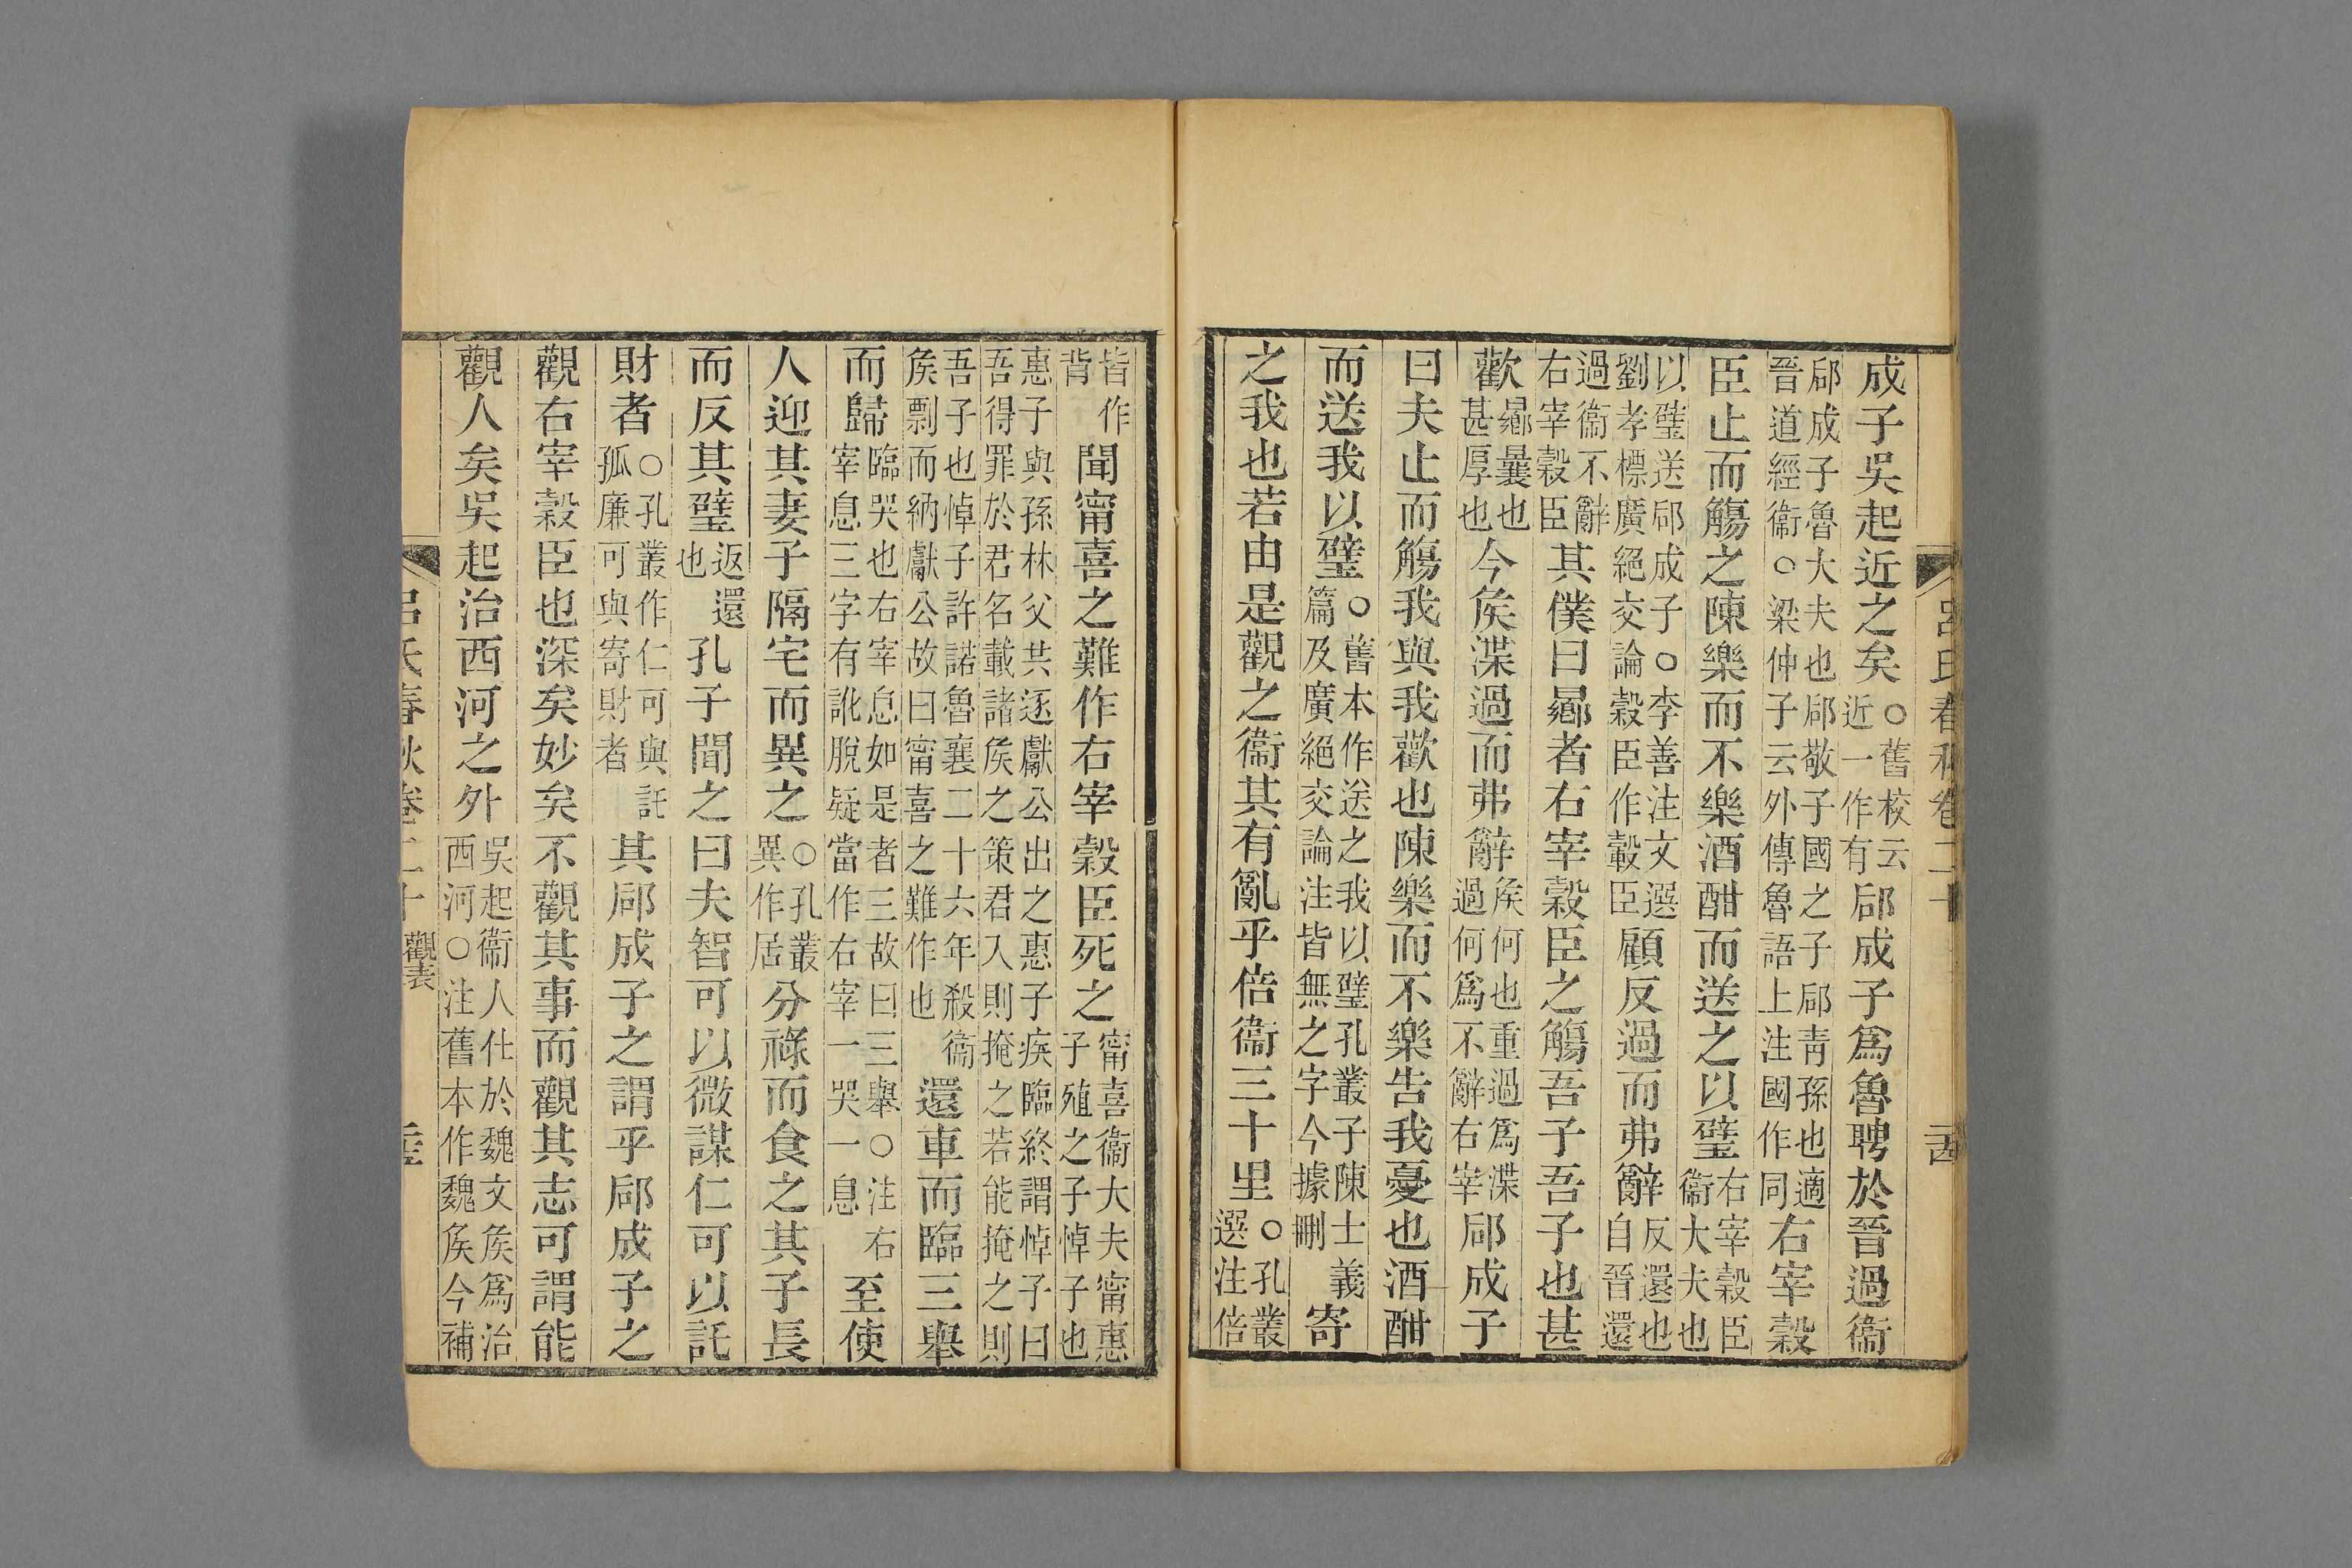 成子吳起近之矣○舊校云近一作有郈成子爲魯聘於晉過衞
郈成子魯大夫也郈敬子國之子郈靑孫也適晉道經衞○梁仲子云外傳魯語上注國作同右宰穀
臣止而觴之陳樂而不樂酒酣而送之以璧右宰穀臣衞大夫也
以璧送郈成子○李善注文選劉孝標廣絕交論穀臣作轂臣顧反過而弗辭反還也自晉還
過衞不辭右宰穀臣其僕曰曏者右宰穀臣之觴吾子吾子也甚
歡曏曩也甚厚也今矦渫過而弗辭矦何也重過爲渫過何爲不辭右宰郈成子
曰夫止而觴我與我歡也陳樂而不樂告我憂也酒酣
而送我以璧○舊本作送之我以璧孔叢子陳士義篇及廣絕交論注皆無之字今據刪寄
之我也若由是觀之衞其有亂乎倍衞三十里○孔叢選注倍
皆作背聞甯喜之難作右宰穀臣死之甯喜衞大夫甯惠子殖之子悼子也
惠子與孫林父共逐獻公出之惠子疾臨終謂悼子曰吾得罪於君名載諸矦之策君入則掩之若能掩之則
吾子也悼子許諾魯襄二十六年殺衞矦剽而納獻公故曰甯喜之難作也還車而臨三舉
而歸臨哭也右宰息如是者三故曰三舉○注右宰息三字有訛脫疑當作右宰一哭一息至使
人迎其妻子隔宅而異之○孔叢異作居分祿而食之其子長
而反其璧返還也孔子聞之曰夫智可以微謀仁可以託
財者○孔叢作仁可與託孤廉可與寄財者其郈成子之謂乎郈成子之
觀右宰穀臣也深矣妙矣不觀其事而觀其志可謂能
觀人矣吳起治西河之外吳起衞人仕於魏文矦爲治西河○注舊本作魏矦今補
呂氏春秋卷二十 觀表